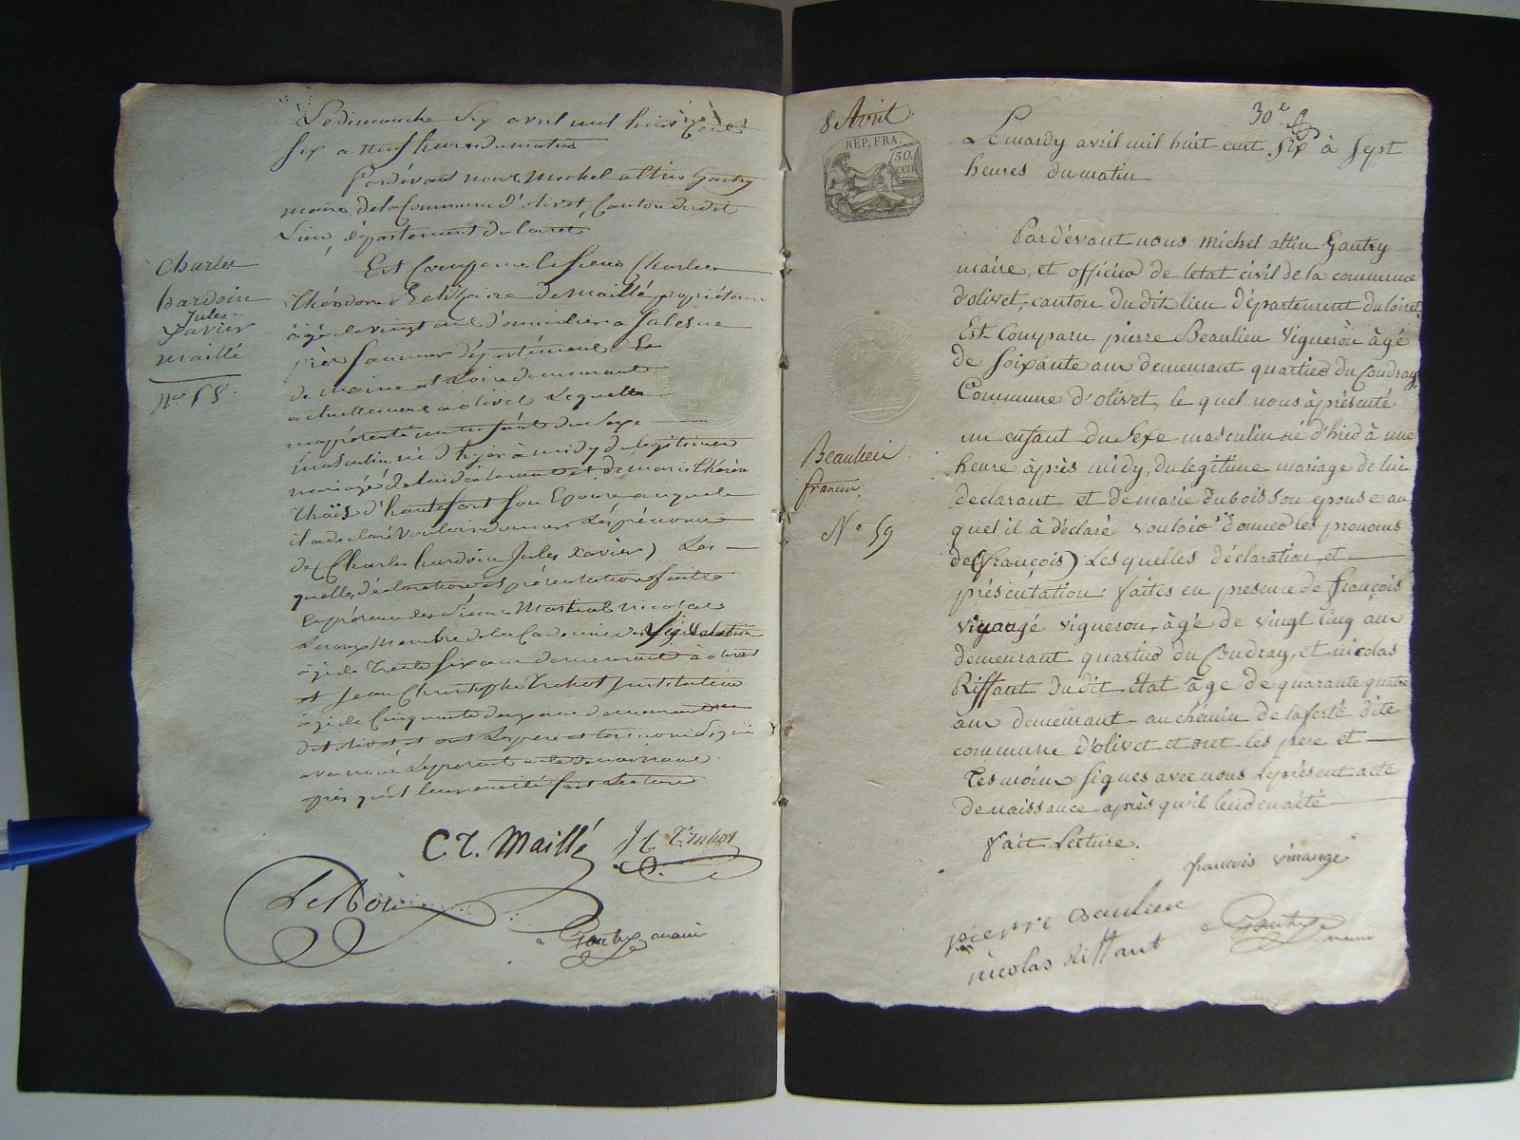 Le dimanche six avril mil huit cent
six a neuf heures du matin
Pardevant nous Michel altin Gautry
maire de la Commune d'olivet, Canton dudit
Lieu, département du Loiret
Est Comparu le sieur Charles
Théodore de Maillé propriétaire
âgé de vingt
près Saumur département de
de maine et Loire demeurant
actuellement a olivet Lequel
a présenté un enfant du sexe
masculin né d'hyer à midy du légitime
mariage de lui déclarant et de marie
d'hautefort son Epouse auquel
il a declaré vouloir donner Les prénoms
de (Charles hardoin Jules Xavier) Les
quelles déclaration et présentation faites
en présence des sieurs Martial nicolas
âgé de trente six ans demeurant à olivet
et Jean Christophe Trehot Instituteur
âgé de Cinquante deux ans demeurant
dit olivet et ont Le père et temoins signé
avec nous Le présent acte de naissance
après qu'il leur en a été fait Lecture
Charles
hardoin
Jules
Xavier
Maillé
nº 58
C.T. Maillé
Gautry maire
8 Avril
REP. FRA.
50.
30e
Le mardy avril mil huit cent six à sept
heures du matin
Pardevant nous michel altin Gautry
maire, et officier de letat civil de la commune
d'olivet, canton du dit lieu département du loiret
Est Comparu pierre Beaulieu Vigneron âgé
de soixante ans demeurant quartier du Coudray
Commune d'olivet, le quel nous à présenté
un enfant du sexe masculin né d'hier à une
heure après midy, du legitime mariage de lui
declarant et de marie dubois son epouse au
quel il à déclaré vouloir donner les prenoms
de (françois) Lesquelles déclaration, et
présentation faites en presence de françois
vinangé vigneron, âgé de vingt cinq ans
demeurant quartier du Coudray, et nicolas
Riffaut du dit état âgé de quarante quatre
ans demeurant au chemin de laferté dite
commune d'olivet et ont les pere et
Tesmoins signes avec nous le present acte
de naissance après qu'il leur en a été
fait Lecture.
Beaulieu
francois
Nº 59
francois vinangé
pierre Beaulieu
Gautry
maire
nicolas Riffaut